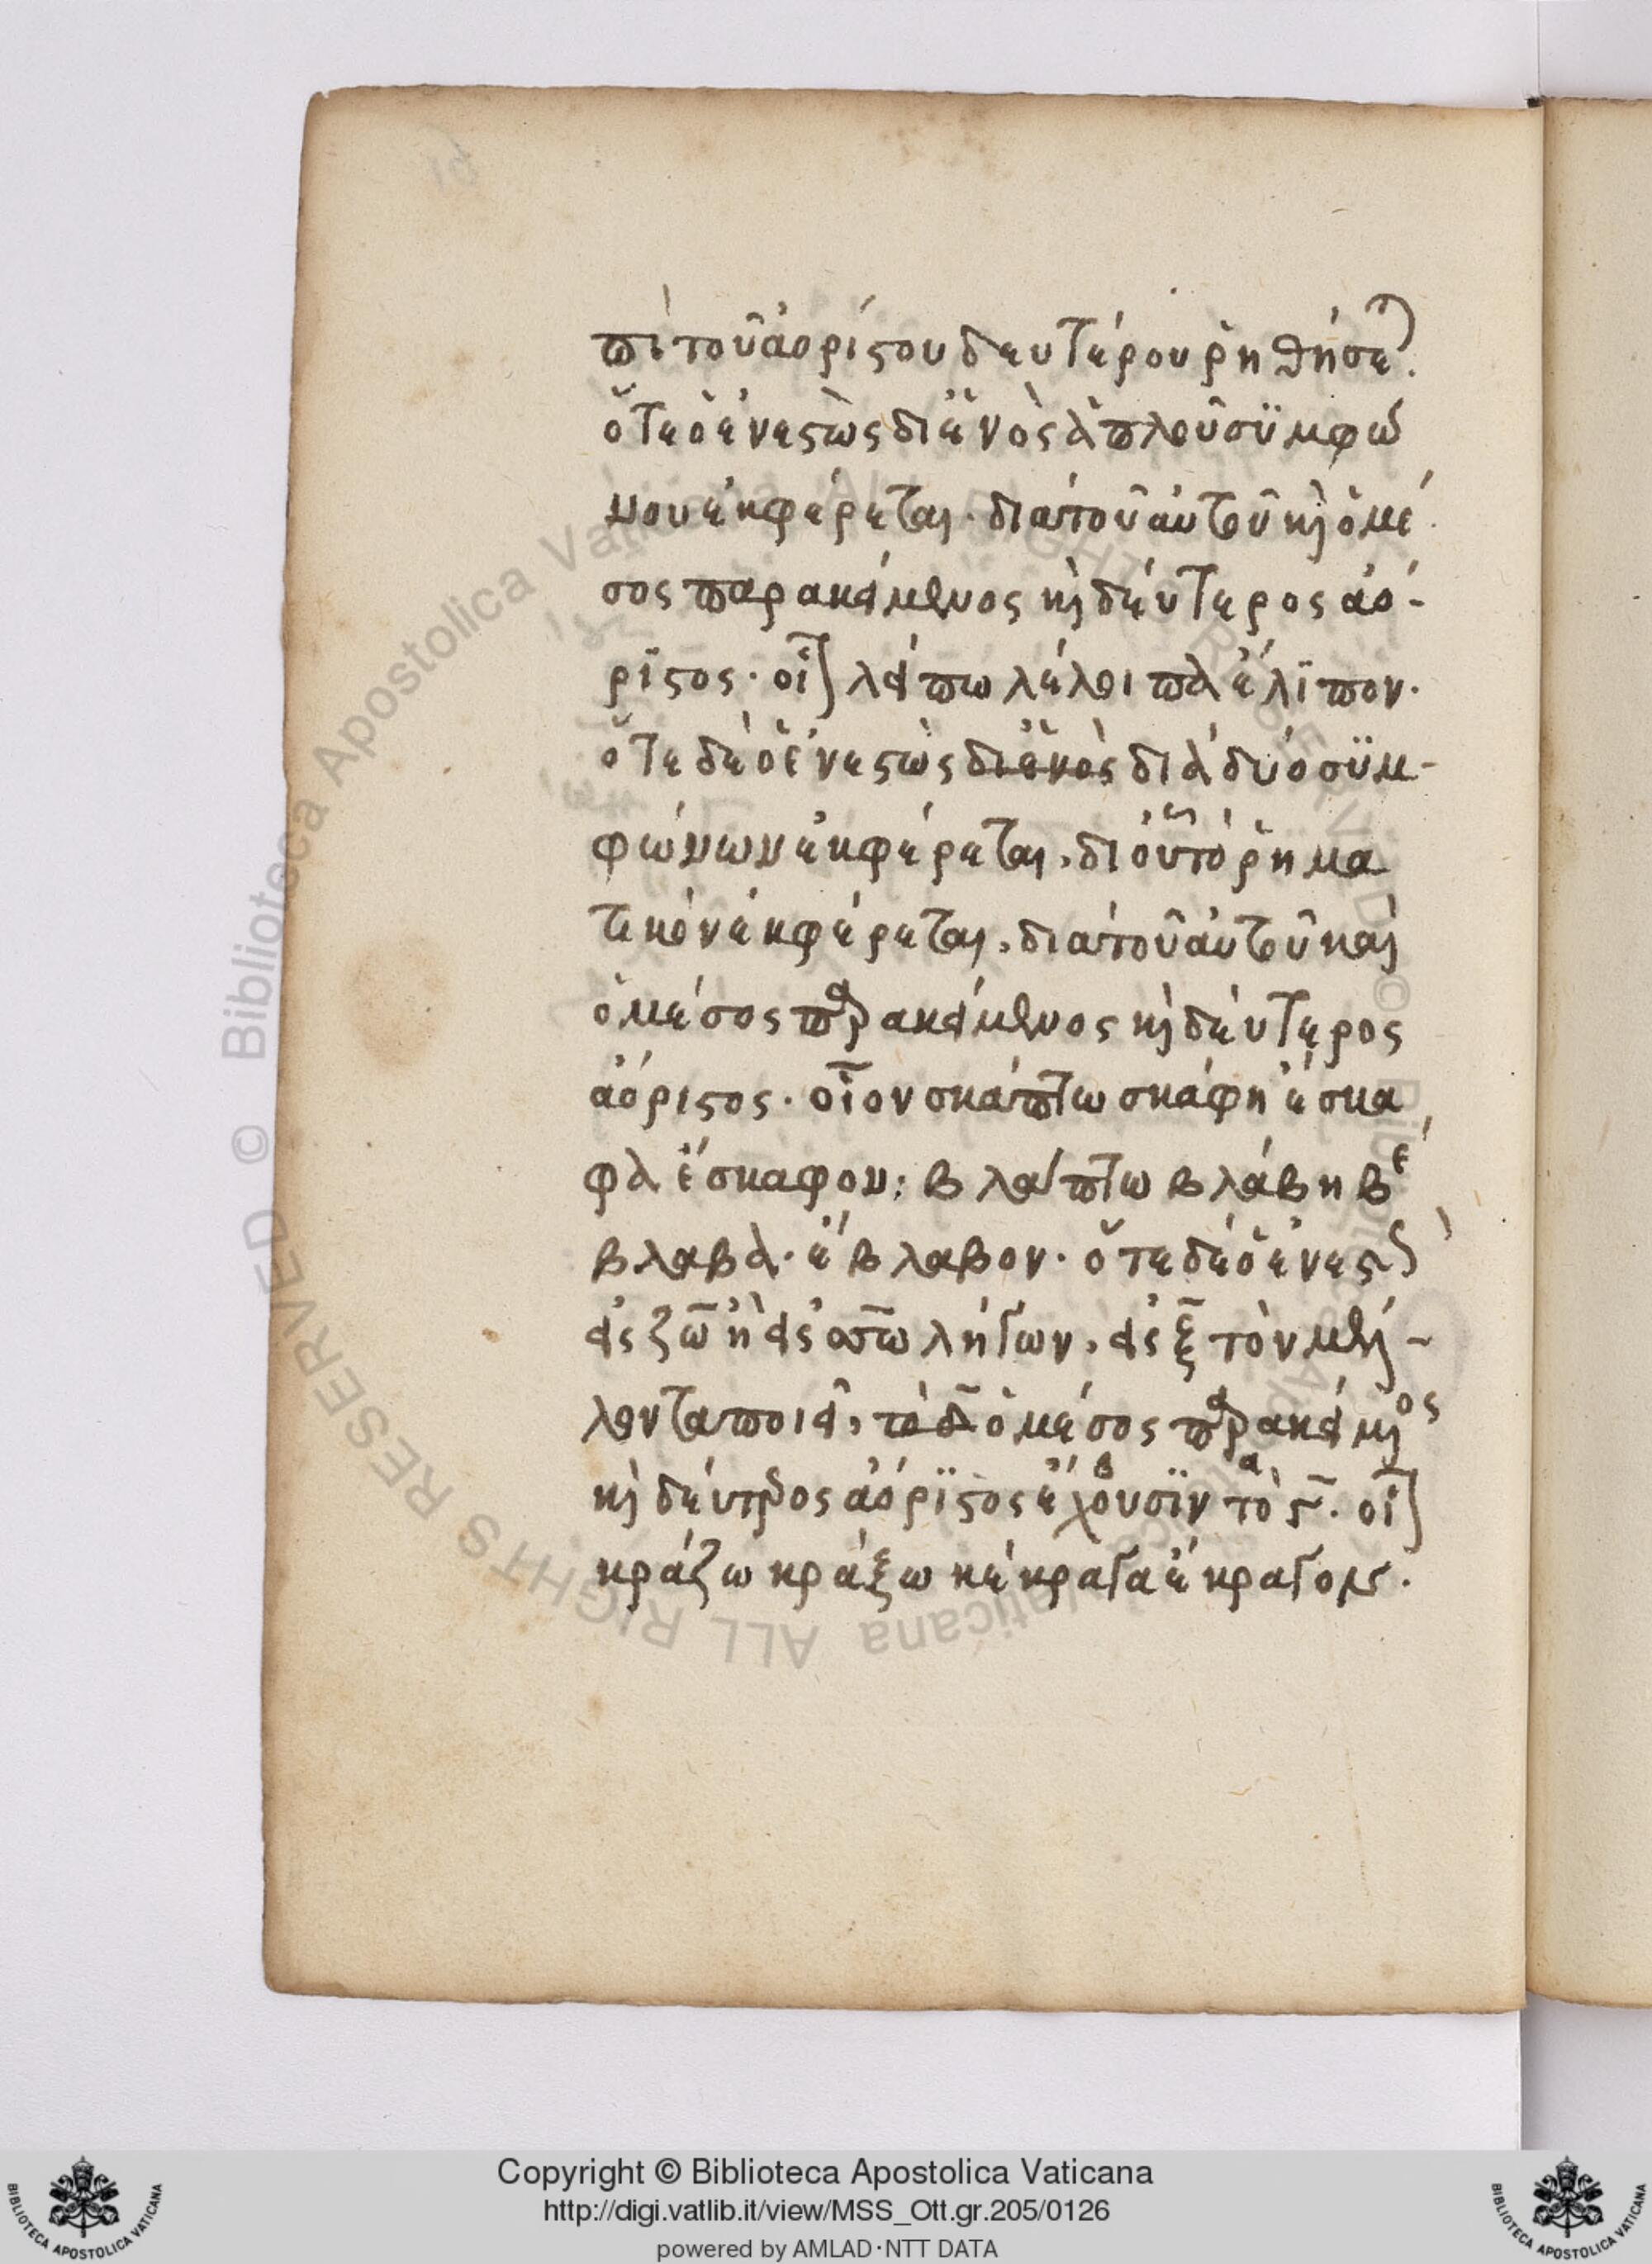 πὶ τοῦ ἀορίστου δευτέρου ῥηθήσεται.
ὅτε ὁ ἐνεστὼς δι ἑνὸς ἁπλοῦ συμφώ
νου ἐκφέρεται. διὰ τοῦ αὐτοῦ καὶ ὁ μέ
σος παρακείμενος καὶ δεύτερος ἀό-
ριστος. οἷον λείπω λέλοιπα ἔλιπον.
ὅτε δὲ ὁ ἐνεστὼς δι ἑνὸς διὰ δύο συμ-
φώνων ἐκφέρεται, δι οὗ τὸ ῥημα
τικὸν ἐκφέρεται, διὰ τοῦ αὐτοῦ καὶ
ὁ μέσος παρακείμενος καὶ δεύτερος
ἀόριστος. οἷον σκάπτω σκάφη ἔσκα
φα ἔσκαφον: βλάπτω βλάβη βέ
βλαβα. ἔβλαβον. ὅτε δὲ ὁ ἐνεστὼς
εἰς ζω ἢ εἰς σσω λήγων, εἰς ξ τὸν μέλ-
λοντα ποιεῖ, ὁ μέσος παρακείμενος
καὶ δεύτερος ἀόριστος ἔχουσιν τὸ γ. οἷον
κράζω κράξω κέκραγα ἔκραγον.
Copyright © Biblioteca Apostolica Vaticana
http://digi.vatlib.it/view/MSS_Ott.gr.205/0126
powered by AMLAD·NTT DATA